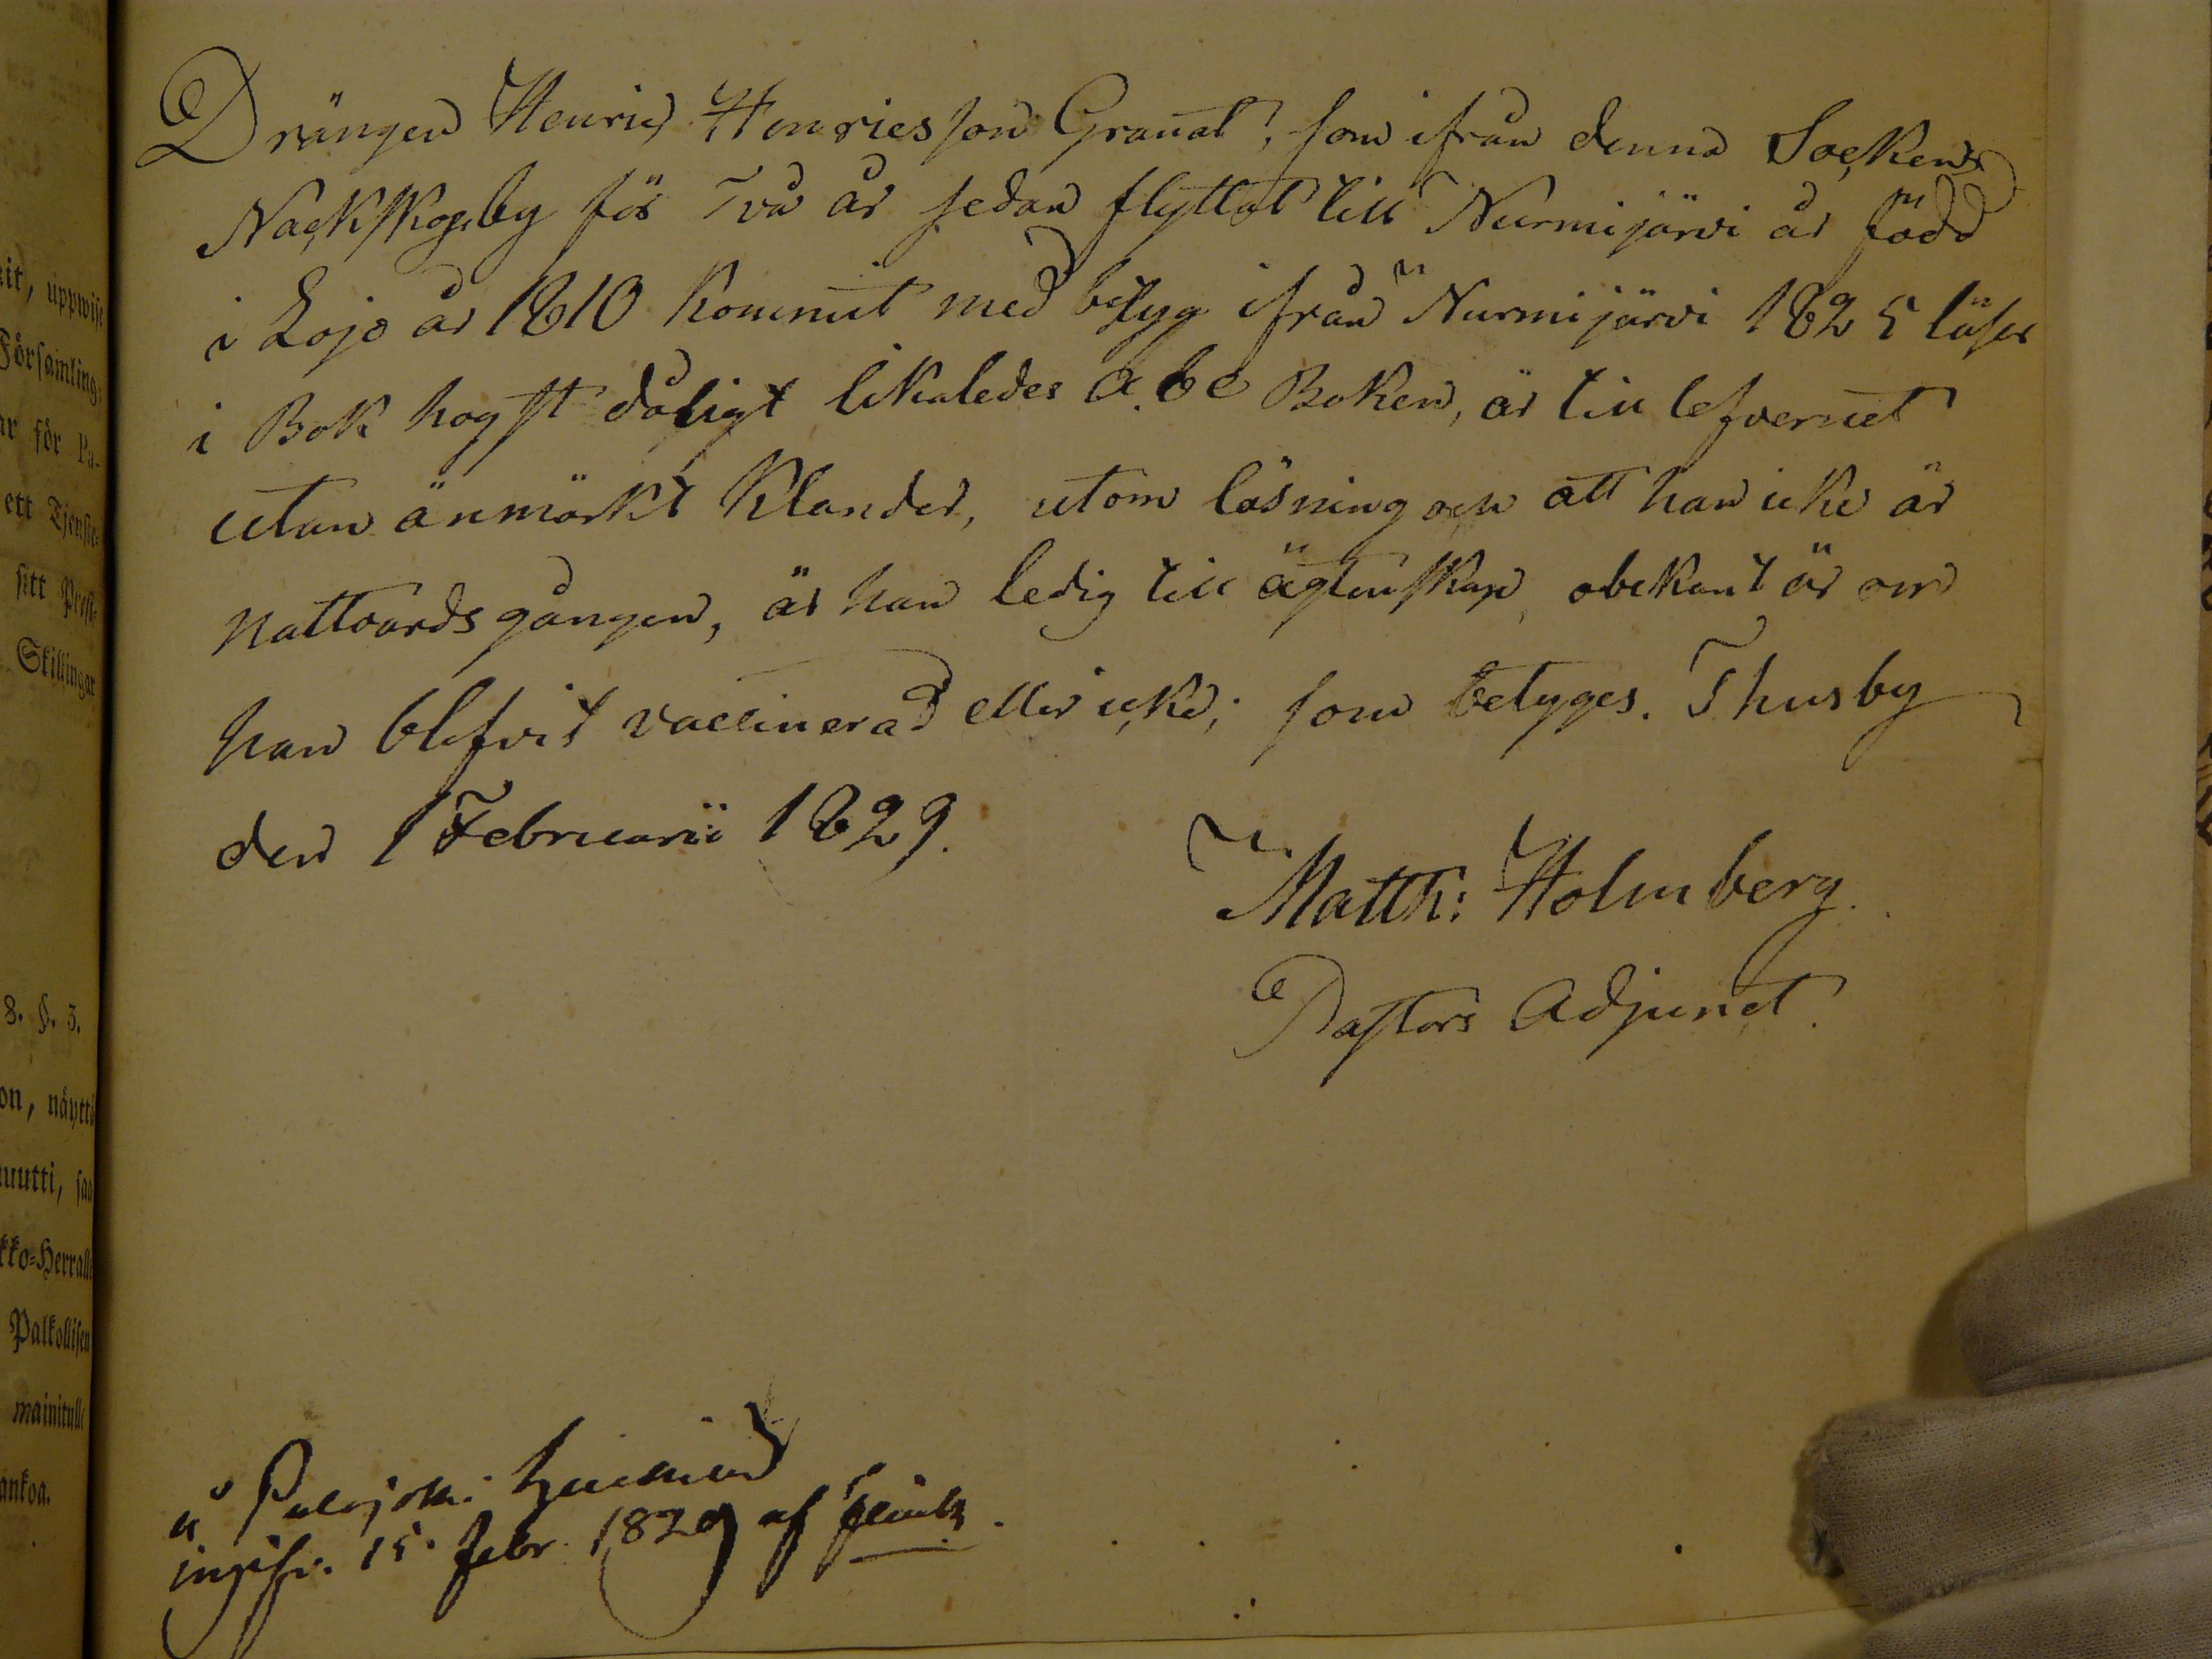 Drängen Henric Henricsson Granat, som ifrån denna Sockens
Nackskogsby för Två år sedan flyttat till Nurmijärvi är född
i Lojo år 1810 kommit med betyg ifrån Nurmijärvi 1825 läser
i Bok högst dåligt likaledes a.b.c Boken, är till lefvernet
utan anmärkt klander, utom läsning och att han icke är
nattvardsgången, är han ledig till ägtenskap, obekant är om
han blefvit vaccinerad eller icke; som betyges. Thusby
den 1 Februarii 1829.
Matth: Holmberg.
Pastors Adjunct.
å
15 febr. 1829 af
it, uppwise
Församling:
för Pa-
ett Tjenste-
sitt Prest-
Skillingar
8. §. 3.
on, näyttä
muutti, saa
kko-Herrall
Palkollisen
mainitulle
ankoa.